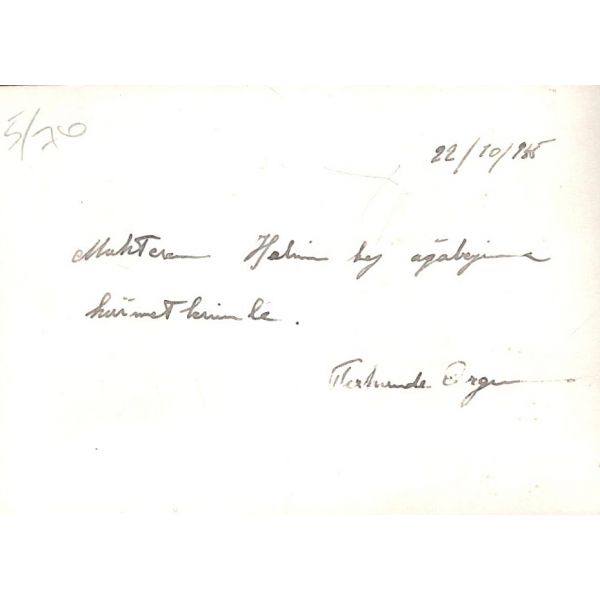 5/20
22/10/965
Muhterem Halim bey ağabeyime
hürmetlerimle.
Ferhunde